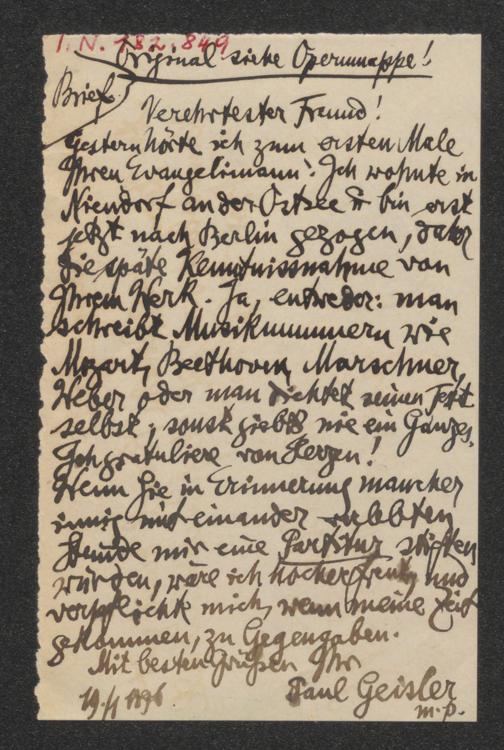 I. N. 182.849
Original siehe Opernmappe!
Brief
Verehrtester Freund!
Gestern hörte ich zum ersten Male
Ihren Evangelimann. Ich wohnte in
Niendorf an der Ostsee & bin erst
jetzt nach Berlin gezogen, daher
die späte Kenntnissnahme von
Ihrem Werk. Ja, entweder: man
schreibt Musiknummern wie
Mozart, Beethoven, Marschner,
Weber oder man dichtet seinen Text
selbst; sonst giebts nie ein Ganzes.
Ich gratuliere von Herzen!
Wenn Sie in Erinnerung mancher
innig mit einander verlebten
Stunde mir eine Partitur stiften
würden, wäre ich hocherfreut, und
verpflichte mich, wenn meine Zeit
gekommen, zu Gegengaben.
Mit besten Grüßen Ihr
Paul Geisler
19. 1896
m.p.